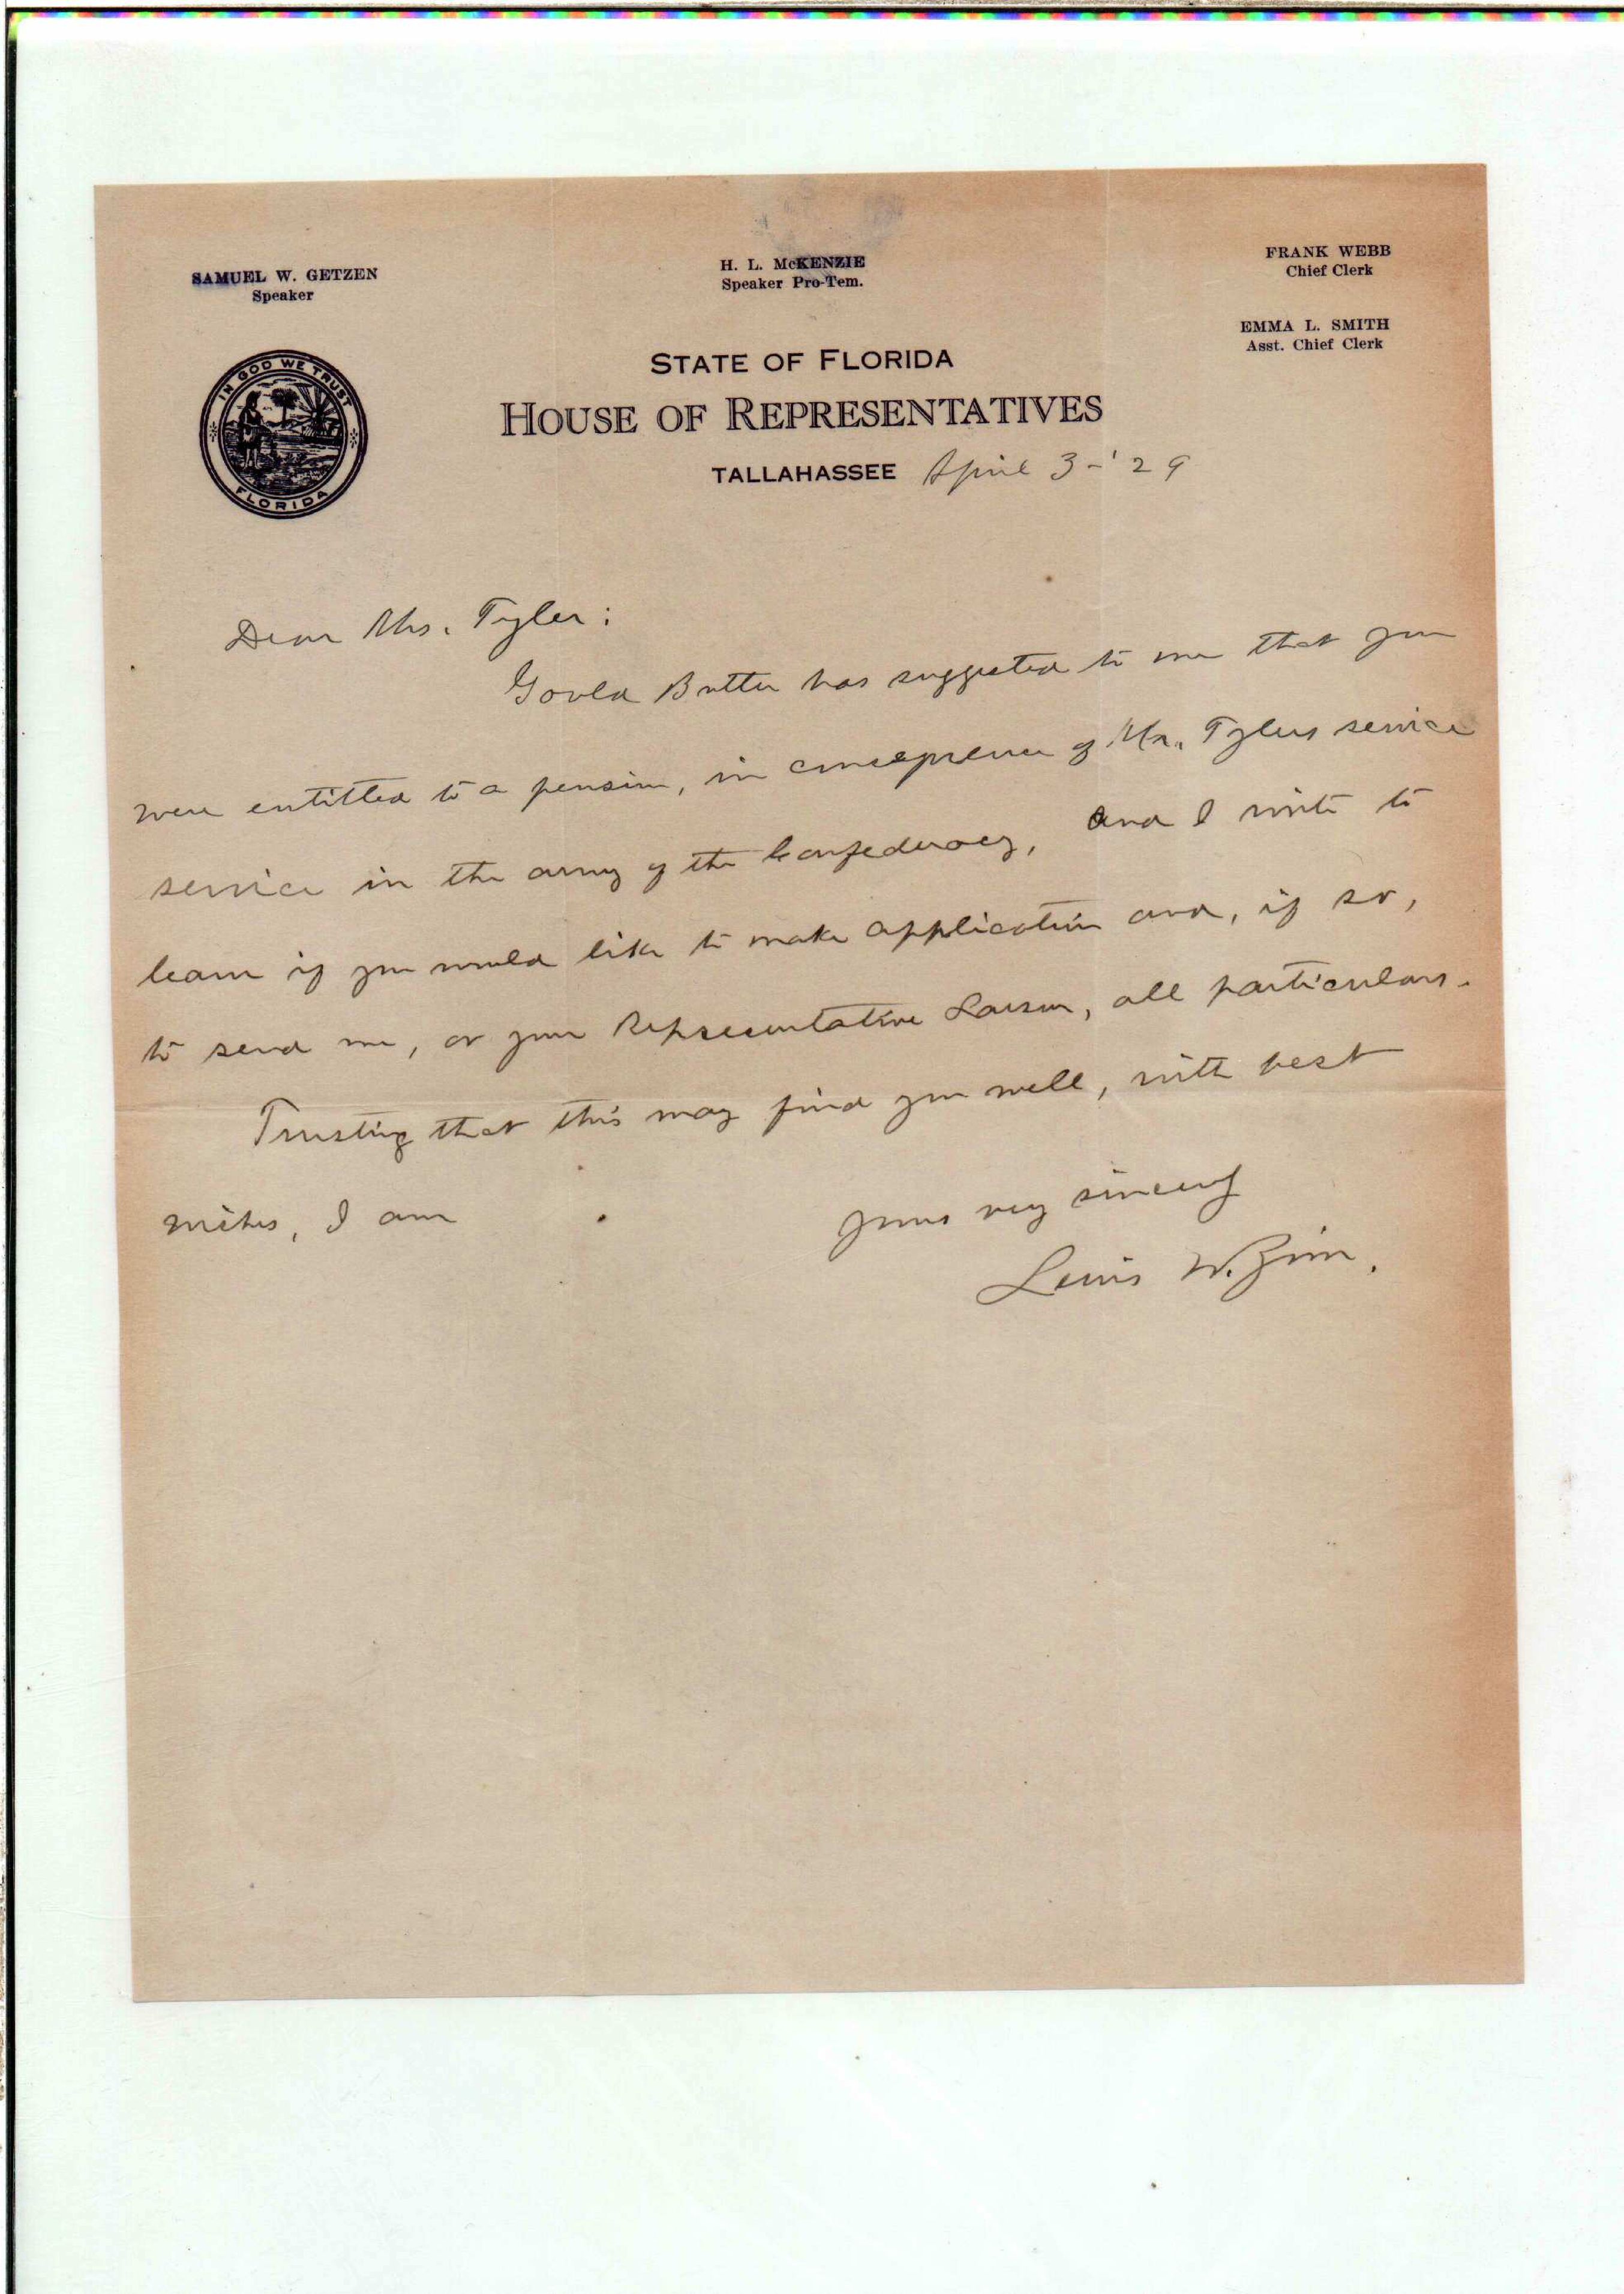 SAMUEL W. GETZEN
Speaker
H. L. McKENZIE
Speaker Pro-Tem.
FRANK WEBB
Chief Clerk
EMMA L. SMITH
Asst. Chief Clerk
IN GOD WE TRUST
FLORIDA
STATE OF FLORIDA
HOUSE OF REPRESENTATIVES
TALLAHASSEE April 3-'29
Dear Mrs. Tyler:
Gould Butler has suggested to me that you
were entitled to a pension, in consequence of Mr. Tylers service
service in the army of the Confederacy, and I write to
learn if you would like to make application and, if so,
to send me, or your Representative Larson, all particulars.
Trusting that this may find you well, with best
wishes, I am
yours very sincerely
Lewis W. Zim.